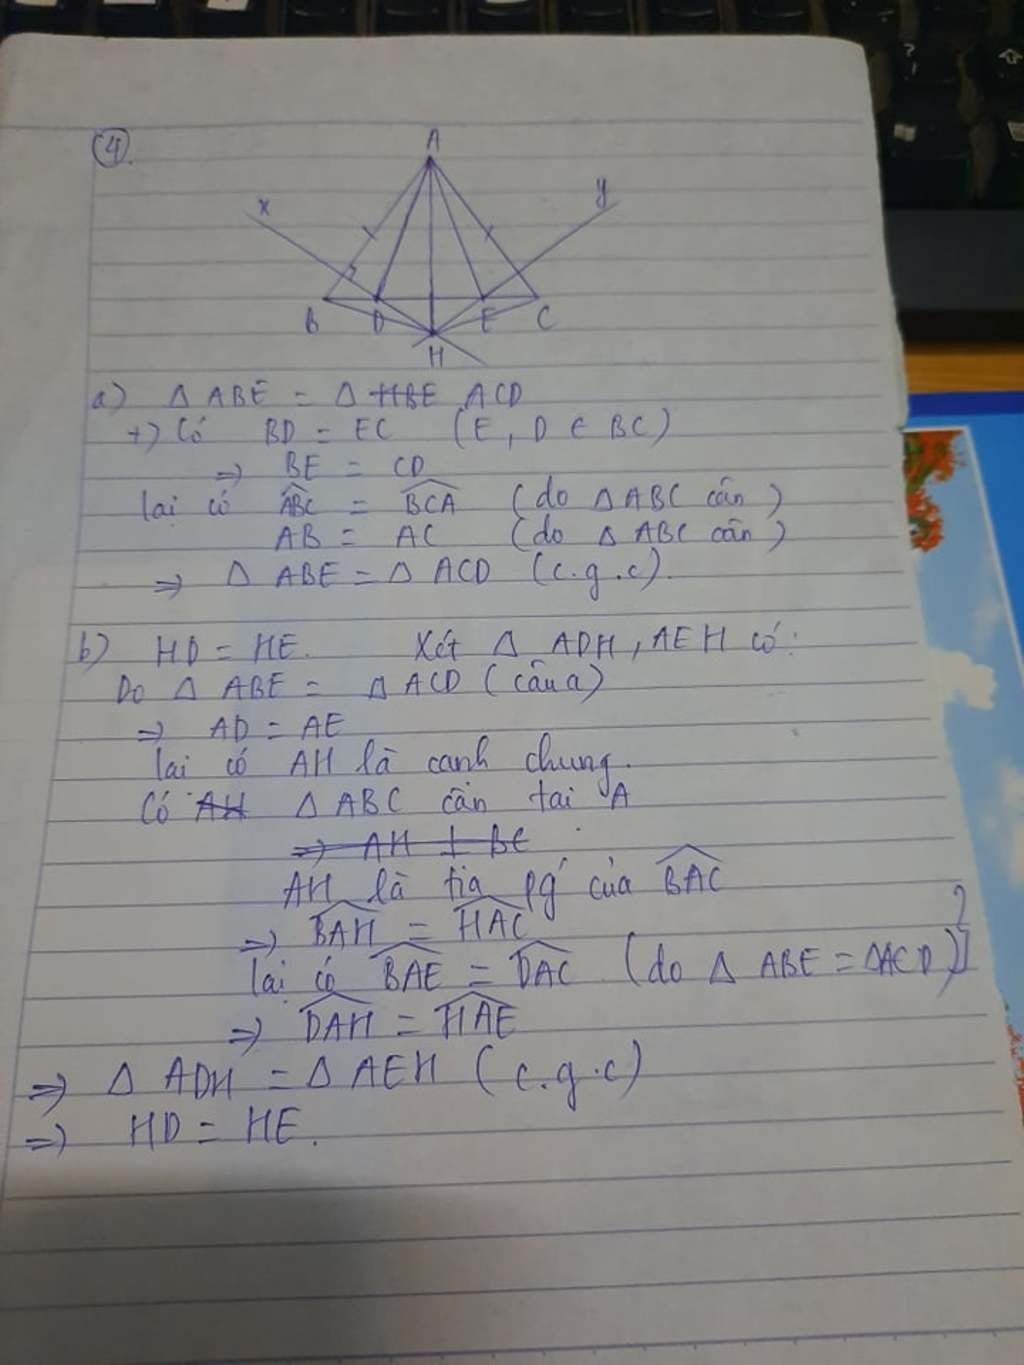 4
A
x
y
B D E C
H
a) Δ ABE = Δ HBE ACD
+) Có BD = EC (E, D ∈ BC)
=> BE = CD
lại có ABC = BCA (do Δ ABC cân)
AB = AC (do Δ ABC cân)
=> Δ ABE = Δ ACD (c.g.c).
b) HD = HE. Xét Δ ADH, AEH có:
Do Δ ABE = Δ ACD (câu a)
=> AD = AE
lại có AH là cạnh chung.
Có AH Δ ABC cân tại A
=> AH ⊥ BC
AH là tia pg của BAC
=> BAH = HAC
lại có BAE = DAC (do Δ ABE = ΔACD)
=> DAH = HAE
=> Δ ADH = Δ AEH (c.g.c)
=> HD = HE.